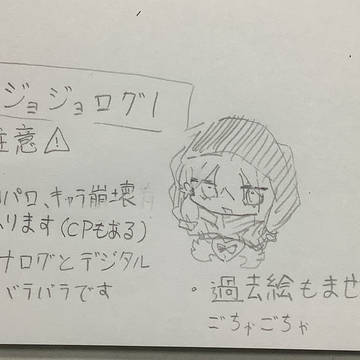 ジョジョログ1
注意⚠
パロ、キャラ崩壊
ります(CPもある)
ナログとデジタル
バラバラです
・過去絵もませ
ごちゃごちゃ